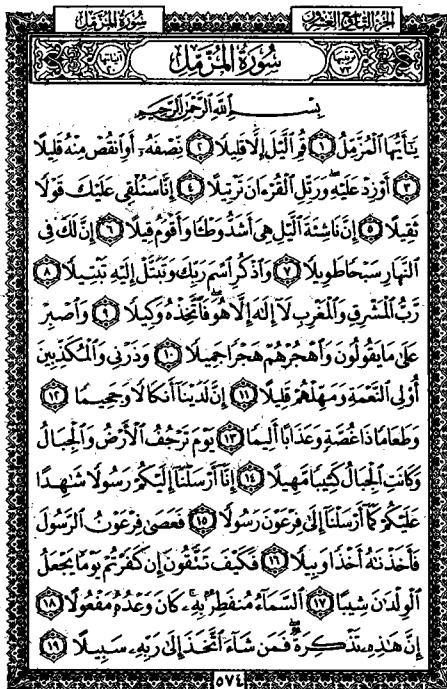 سُورَةُ المُزَّمِّل
الجُزْءُ التَّاسِعُ وَالعِشْرُونَ
سُورَةُ المُزَّمِّل
بِسْمِ اللَّهِ الرَّحْمَٰنِ الرَّحِيمِ
يَٰٓأَيُّهَا ٱلْمُزَّمِّلُ ۝١ قُمِ ٱلَّيْلَ إِلَّا قَلِيلًا ۝٢ نِّصْفَهُۥٓ أَوِ ٱنقُصْ مِنْهُ قَلِيلًا
۝٣ أَوْ زِدْ عَلَيْهِ وَرَتِّلِ ٱلْقُرْءَانَ تَرْتِيلًا ۝٤ إِنَّا سَنُلْقِى عَلَيْكَ قَوْلًا
ثَقِيلًا ۝٥ إِنَّ نَاشِئَةَ ٱلَّيْلِ هِىَ أَشَدُّ وَطْـًٔا وَأَقْوَمُ قِيلًا ۝٦ إِنَّ لَكَ فِى
ٱلنَّهَارِ سَبْحًا طَوِيلًا ۝٧ وَٱذْكُرِ ٱسْمَ رَبِّكَ وَتَبَتَّلْ إِلَيْهِ تَبْتِيلًا ۝٨
رَّبُّ ٱلْمَشْرِقِ وَٱلْمَغْرِبِ لَآ إِلَٰهَ إِلَّا هُوَ فَٱتَّخِذْهُ وَكِيلًا ۝٩ وَٱصْبِرْ
عَلَىٰ مَا يَقُولُونَ وَٱهْجُرْهُمْ هَجْرًا جَمِيلًا ۝١٠ وَذَرْنِى وَٱلْمُكَذِّبِينَ
أُو۟لِى ٱلنَّعْمَةِ وَمَهِّلْهُمْ قَلِيلًا ۝١١ إِنَّ لَدَيْنَآ أَنكَالًا وَجَحِيمًا ۝١٢
وَطَعَامًا ذَا غُصَّةٍ وَعَذَابًا أَلِيمًا ۝١٣ يَوْمَ تَرْجُفُ ٱلْأَرْضُ وَٱلْجِبَالُ
وَكَانَتِ ٱلْجِبَالُ كَثِيبًا مَّهِيلًا ۝١٤ إِنَّآ أَرْسَلْنَآ إِلَيْكُمْ رَسُولًا شَٰهِدًا
عَلَيْكُمْ كَمَآ أَرْسَلْنَآ إِلَىٰ فِرْعَوْنَ رَسُولًا ۝١٥ فَعَصَىٰ فِرْعَوْنُ ٱلرَّسُولَ
فَأَخَذْنَٰهُ أَخْذًا وَبِيلًا ۝١٦ فَكَيْفَ تَتَّقُونَ إِن كَفَرْتُمْ يَوْمًا يَجْعَلُ
ٱلْوِلْدَٰنَ شِيبًا ۝١٧ ٱلسَّمَآءُ مُنفَطِرٌۢ بِهِۦ كَانَ وَعْدُهُۥ مَفْعُولًا ۝١٨
إِنَّ هَٰذِهِۦ تَذْكِرَةٌ فَمَن شَآءَ ٱتَّخَذَ إِلَىٰ رَبِّهِۦ سَبِيلًا ۝١٩
٥٧٤